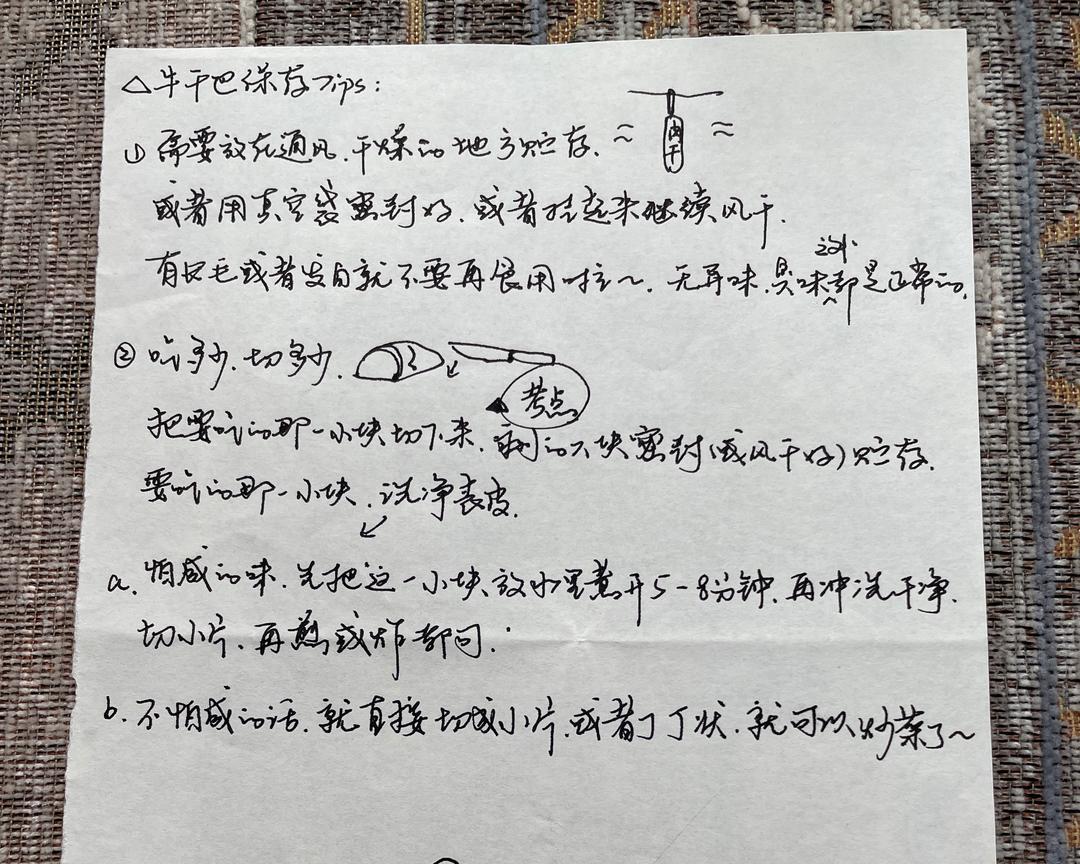 △牛干巴保存Tips:
肉干
① 需要放在通风、干燥的地方贮存、
或者用真空袋密封好、或者挂起来继续风干.
有长毛或者发白就不要再食用啦~、无异味、臭味这些都是正常的,
② 吃多少、切多少、
考点
把要吃的那一小块切下来、剩的大块密封(或风干好)贮存、
要吃的那一小块、洗净表皮、
a. 怕咸的味、先把这一小块放水里煮开5-8分钟、再冲洗干净、
切小片、再煎或炸都可:
b. 不怕咸的话、就直接切成小片、或者丁丁状、就可以炒菜了~